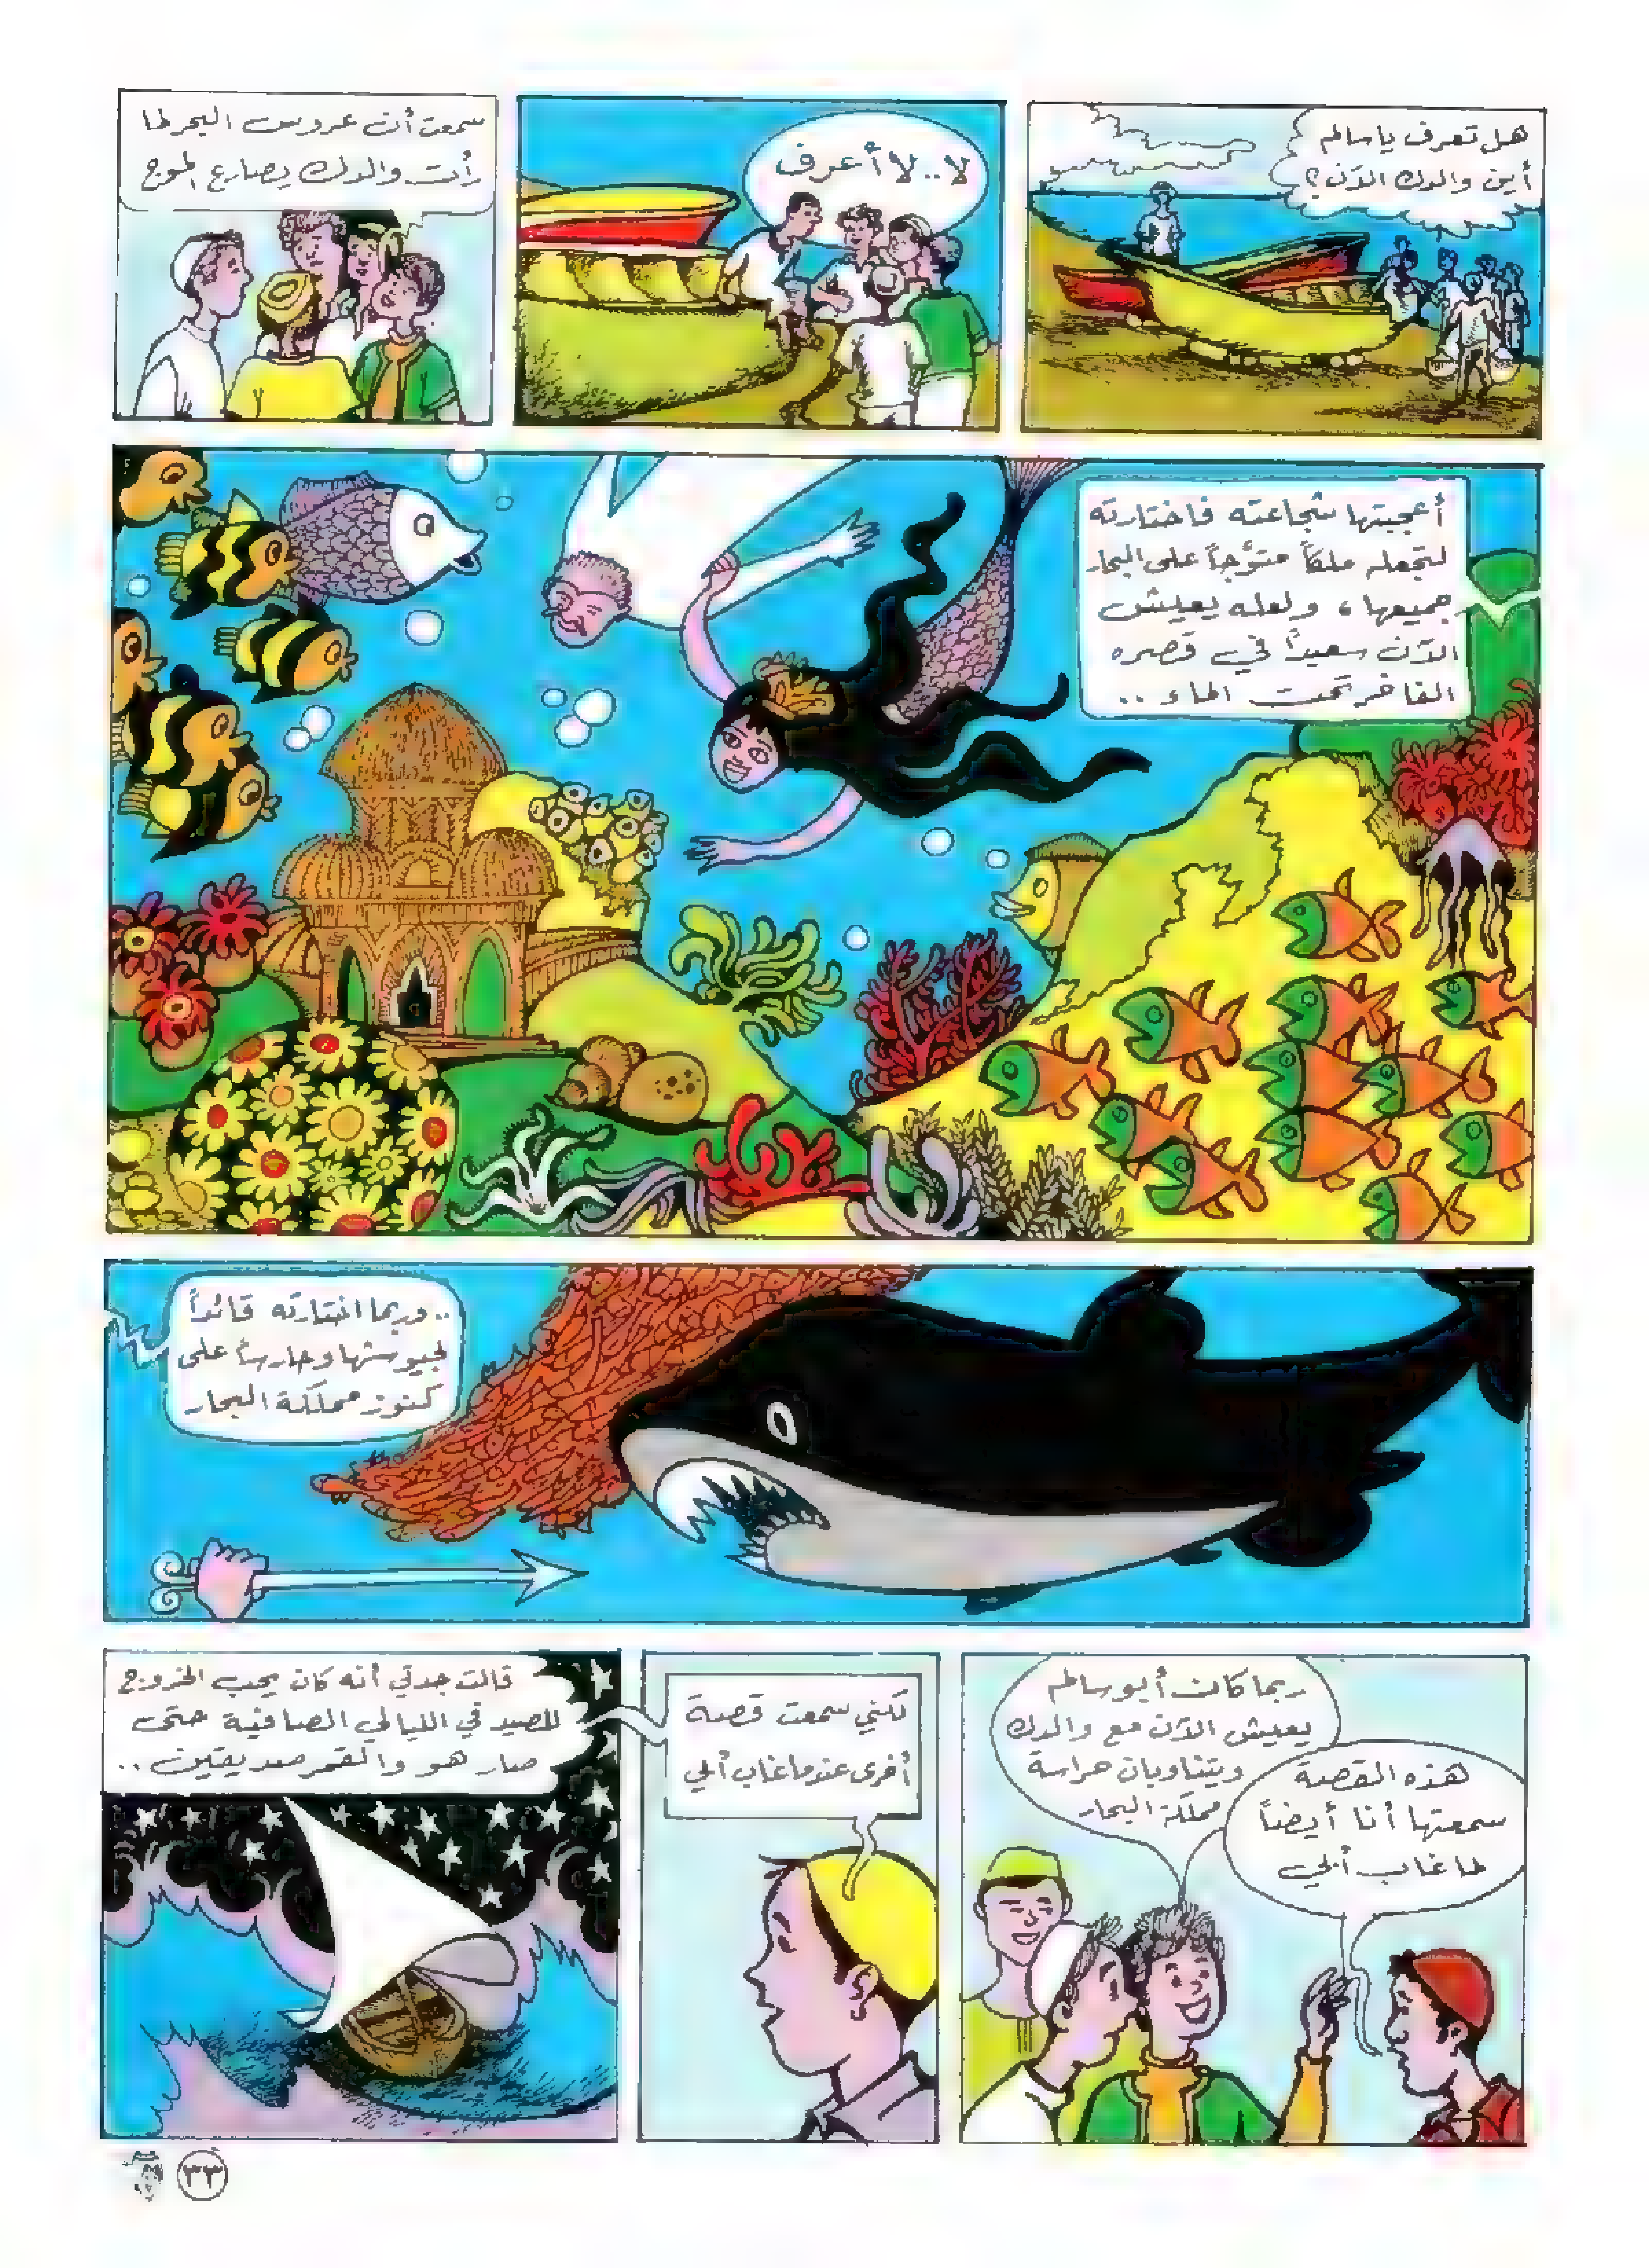 هل تعرف يا سالم
أين والدك الآن؟
لا.. لا أعرف
سمعت أن عروس البحر لما
رأت والدك يصارع الموج
أعجبتها شجاعته فاختارته
لتجعله ملكاً متوّجاً على البحار
جميعها، ولعله يعيش
الآن سعيداً في قصره
الفاخر تحت الماء ..
.. وربما اختارته قائداً
لجيوشها وحارساً على
كنوز مملكة البحار
ربما كان أبو سالم
يعيش الآن مع والدك
ويتناوبان حراسة
مملكة البحار
هذه القصة
سمعتها أنا أيضاً
لما غاب أبي
لكني سمعت قصة
أخرى عندما غاب أبي
قالت جدتي أنه كان يحب الخروج
للصيد في الليالي الصافية حتى
صار هو والقمر صديقين ..
٣٣